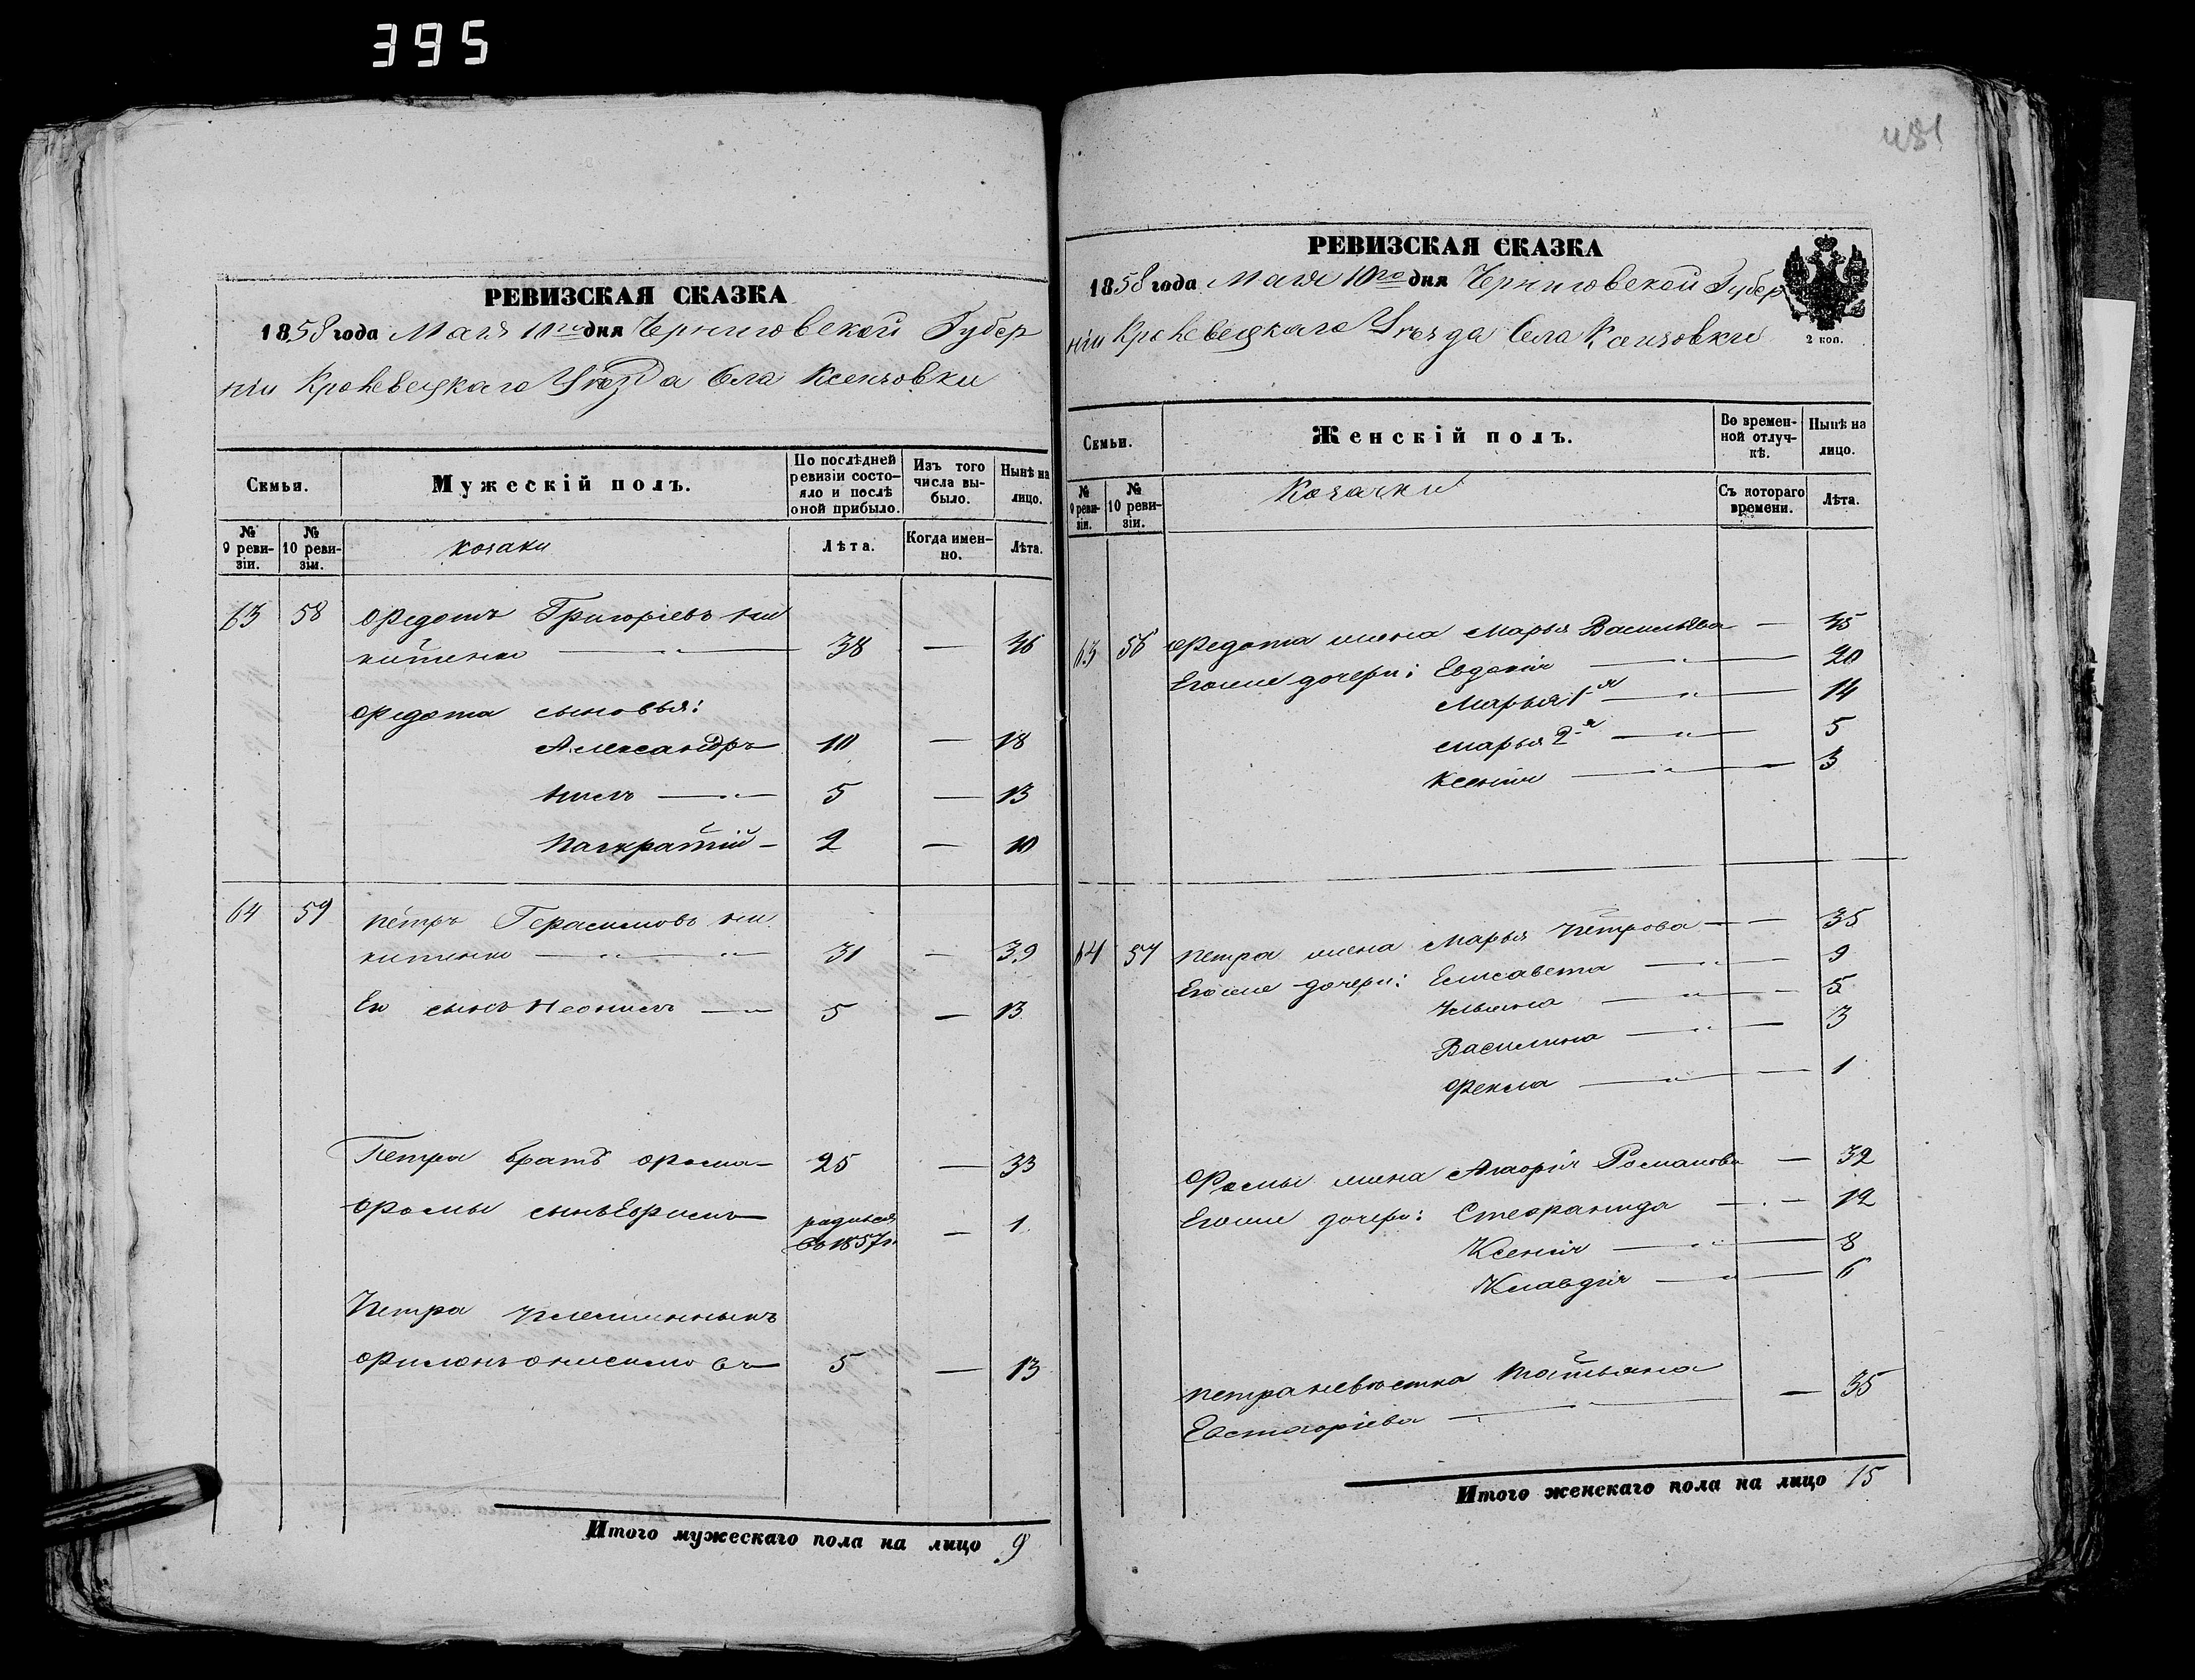 395
РЕВИЗСКАЯ СКАЗКА
1858 года Мая 10го дня Черниговской Губер
ніи Кролевецкаго Уѣзда Села Ксензовки
Семьи.
Мужескій полъ.
По послѣдней ревизіи состояло и послѣ оной прибыло.
Изъ того числа выбыло.
Нынѣ на лицо.
№ 9 ревизіи.
№ 10 ревизіи.
козаки
Лѣта.
Когда именно.
Лѣта.
63 58 Федотъ Григоріевъ Ни
китенко 38 — 46
Федота сыновья:
Александръ 10 — 18
5 — 13
Панкратій 2 — 10
64 59 Петръ Герасимовъ Ни
китенко 31 — 39
Его сынъ 5 — 13
Петра братъ Фома 25 — 33
Фомы сынъ Ефимъ родился въ 1857г. — 1
Петра племянникъ
Филонъ Онисимовъ 5 — 13
Итого мужескаго пола на лицо 9
481
РЕВИЗСКАЯ СКАЗКА
1858 года Мая 10го дня Черниговской Губер
ніи Кролевецкаго Уѣзда Села Ксензовки
2 коп.
Семьи.
Женскій полъ.
Во временной отлучкѣ.
Нынѣ на лицо.
№ 9 ревизіи.
№ 10 ревизіи.
Козачки
Съ котораго времени.
Лѣта.
63 58 Федота жена Марья Васильева — 45
Егоже дочери: Евдокія 20
Марья 1-я 14
Марья 2-я 5
Ксенія 3
64 59 Петра жена Марья Петрова — 35
Егоже дочери: Елисавета 9
Ульяна 5
Василина 3
Фекла 1
Фомы жена Агафія Романова — 32
Егоже дочери: Стефанида 12
Ксенія 8
Клавдія 6
Петра невѣстка Татьяна
Евстафіева — 35
Итого женскаго пола на лицо 15